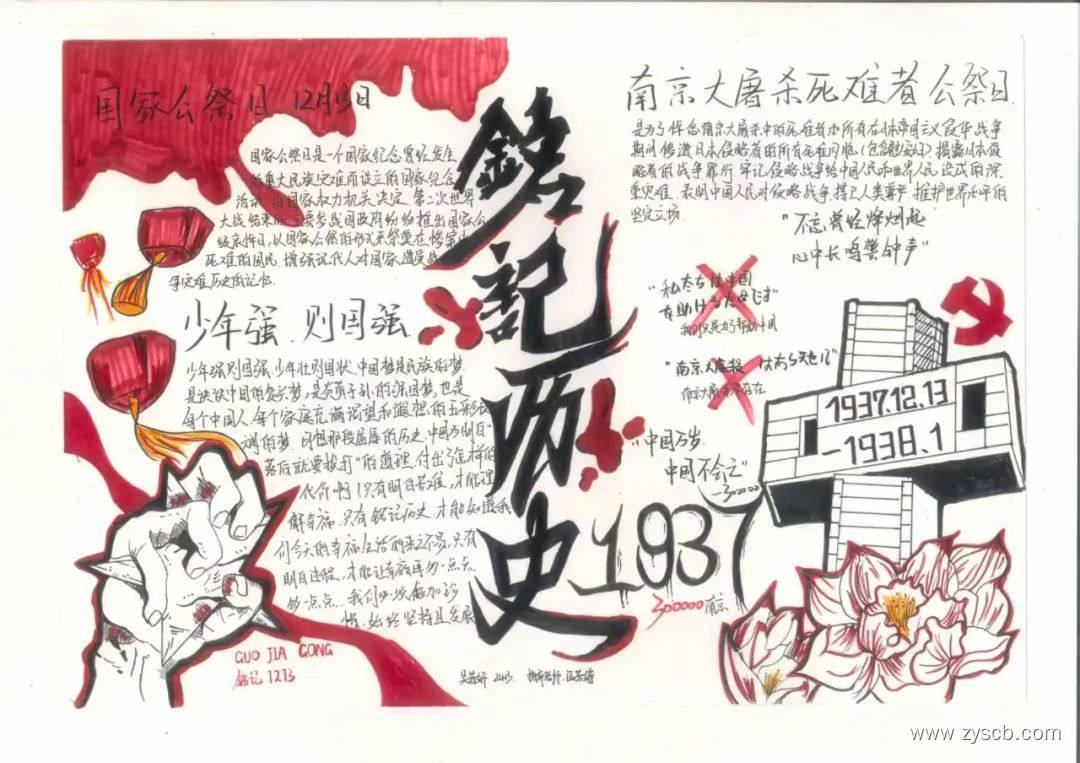 国家公祭日 12月13日
国家公祭日是一个国家纪念曾经发生
的重大民族灾难而设立的国家纪念
活动,由国家权力机关决定。第二次世界
大战结束后,主要参战国政府纷纷推出国家公
祭哀悼日,以国家公祭的形式来祭奠在惨案中
死难的国民,增强现代人对国家遭受战
争灾难历史的记忆.
少年强、则国强.
少年强则国强,少年壮则国状,中国梦是民族的梦,
每个中国人、每个家庭充满渴望和遐想的五彩
调的梦.回想那段屈辱的历史,中国为明白“
落后就要挨打”的道理,付出了怎样的
代价啊!只有明白苦难,才能理
解幸福,只有铭记历史,才能知道我
们今天的幸福生活的来之不易,只有
明白过程,才能让幸福再多一点点,
多一点点.我们必须倍加珍
惜、始终坚持且发展
GUO JIA GONG
铭记 1213
鐫記历史
1937
300000 南京
南京大屠杀死难者公祭日.
是为了悼念南京大屠杀中的死难者和所有在日本帝国主义侵华战争
期间惨遭日本侵略者的所有死难同胞(包含
揭露日本侵
略者的战争罪行,牢记侵略战争给中国人民和世界人民造成的深
重灾难,表明中国人民对侵略战争、捍卫人类尊严、维护世界和平的
坚定立场.
“不忘曾经烽烟起
心中长鸣警钟声”
“私たちは中国
を助けるためです”
我们只是为了帮助中国
南京大屠杀不存在
“中国万岁.
中国不会亡”
—300000
1937.12.13
-1938.1
www.zyscb.com